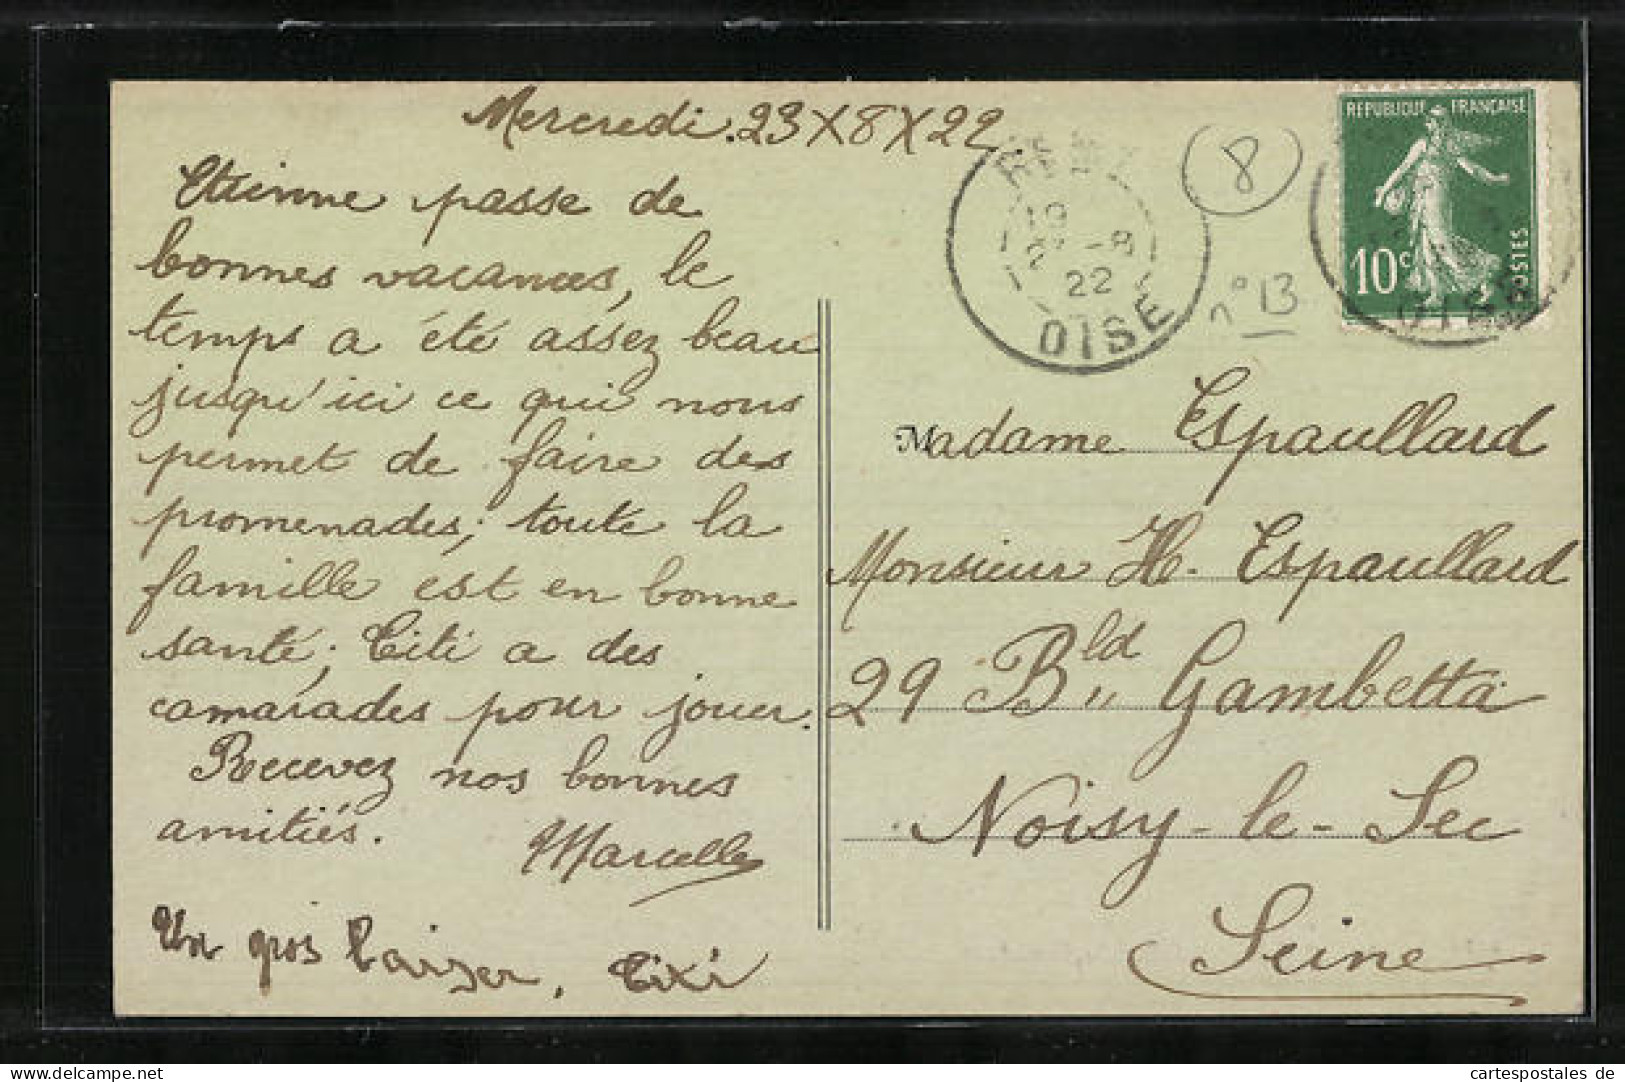 Mercredi. 23 X 8 X 22.
Etienne passe de
bonnes vacances, le
temps a été assez beau
jusqu'ici ce qui nous
permet de faire des
promenades; toute la
famille est en bonne
santé; Titi a des
camarades pour jouer.
Recevez nos bonnes
amitiés.
Marcelle
Un gros baiser, Titi
19
-8
22
OISE
8
n° 13
REPUBLIQUE FRANÇAISE
10c
POSTES
OISE
Madame Espaullard
Monsieur H. Espaullard
29 Bld Gambetta
Noisy-le-Sec
Seine
www.delcampe.net
cartespostales de